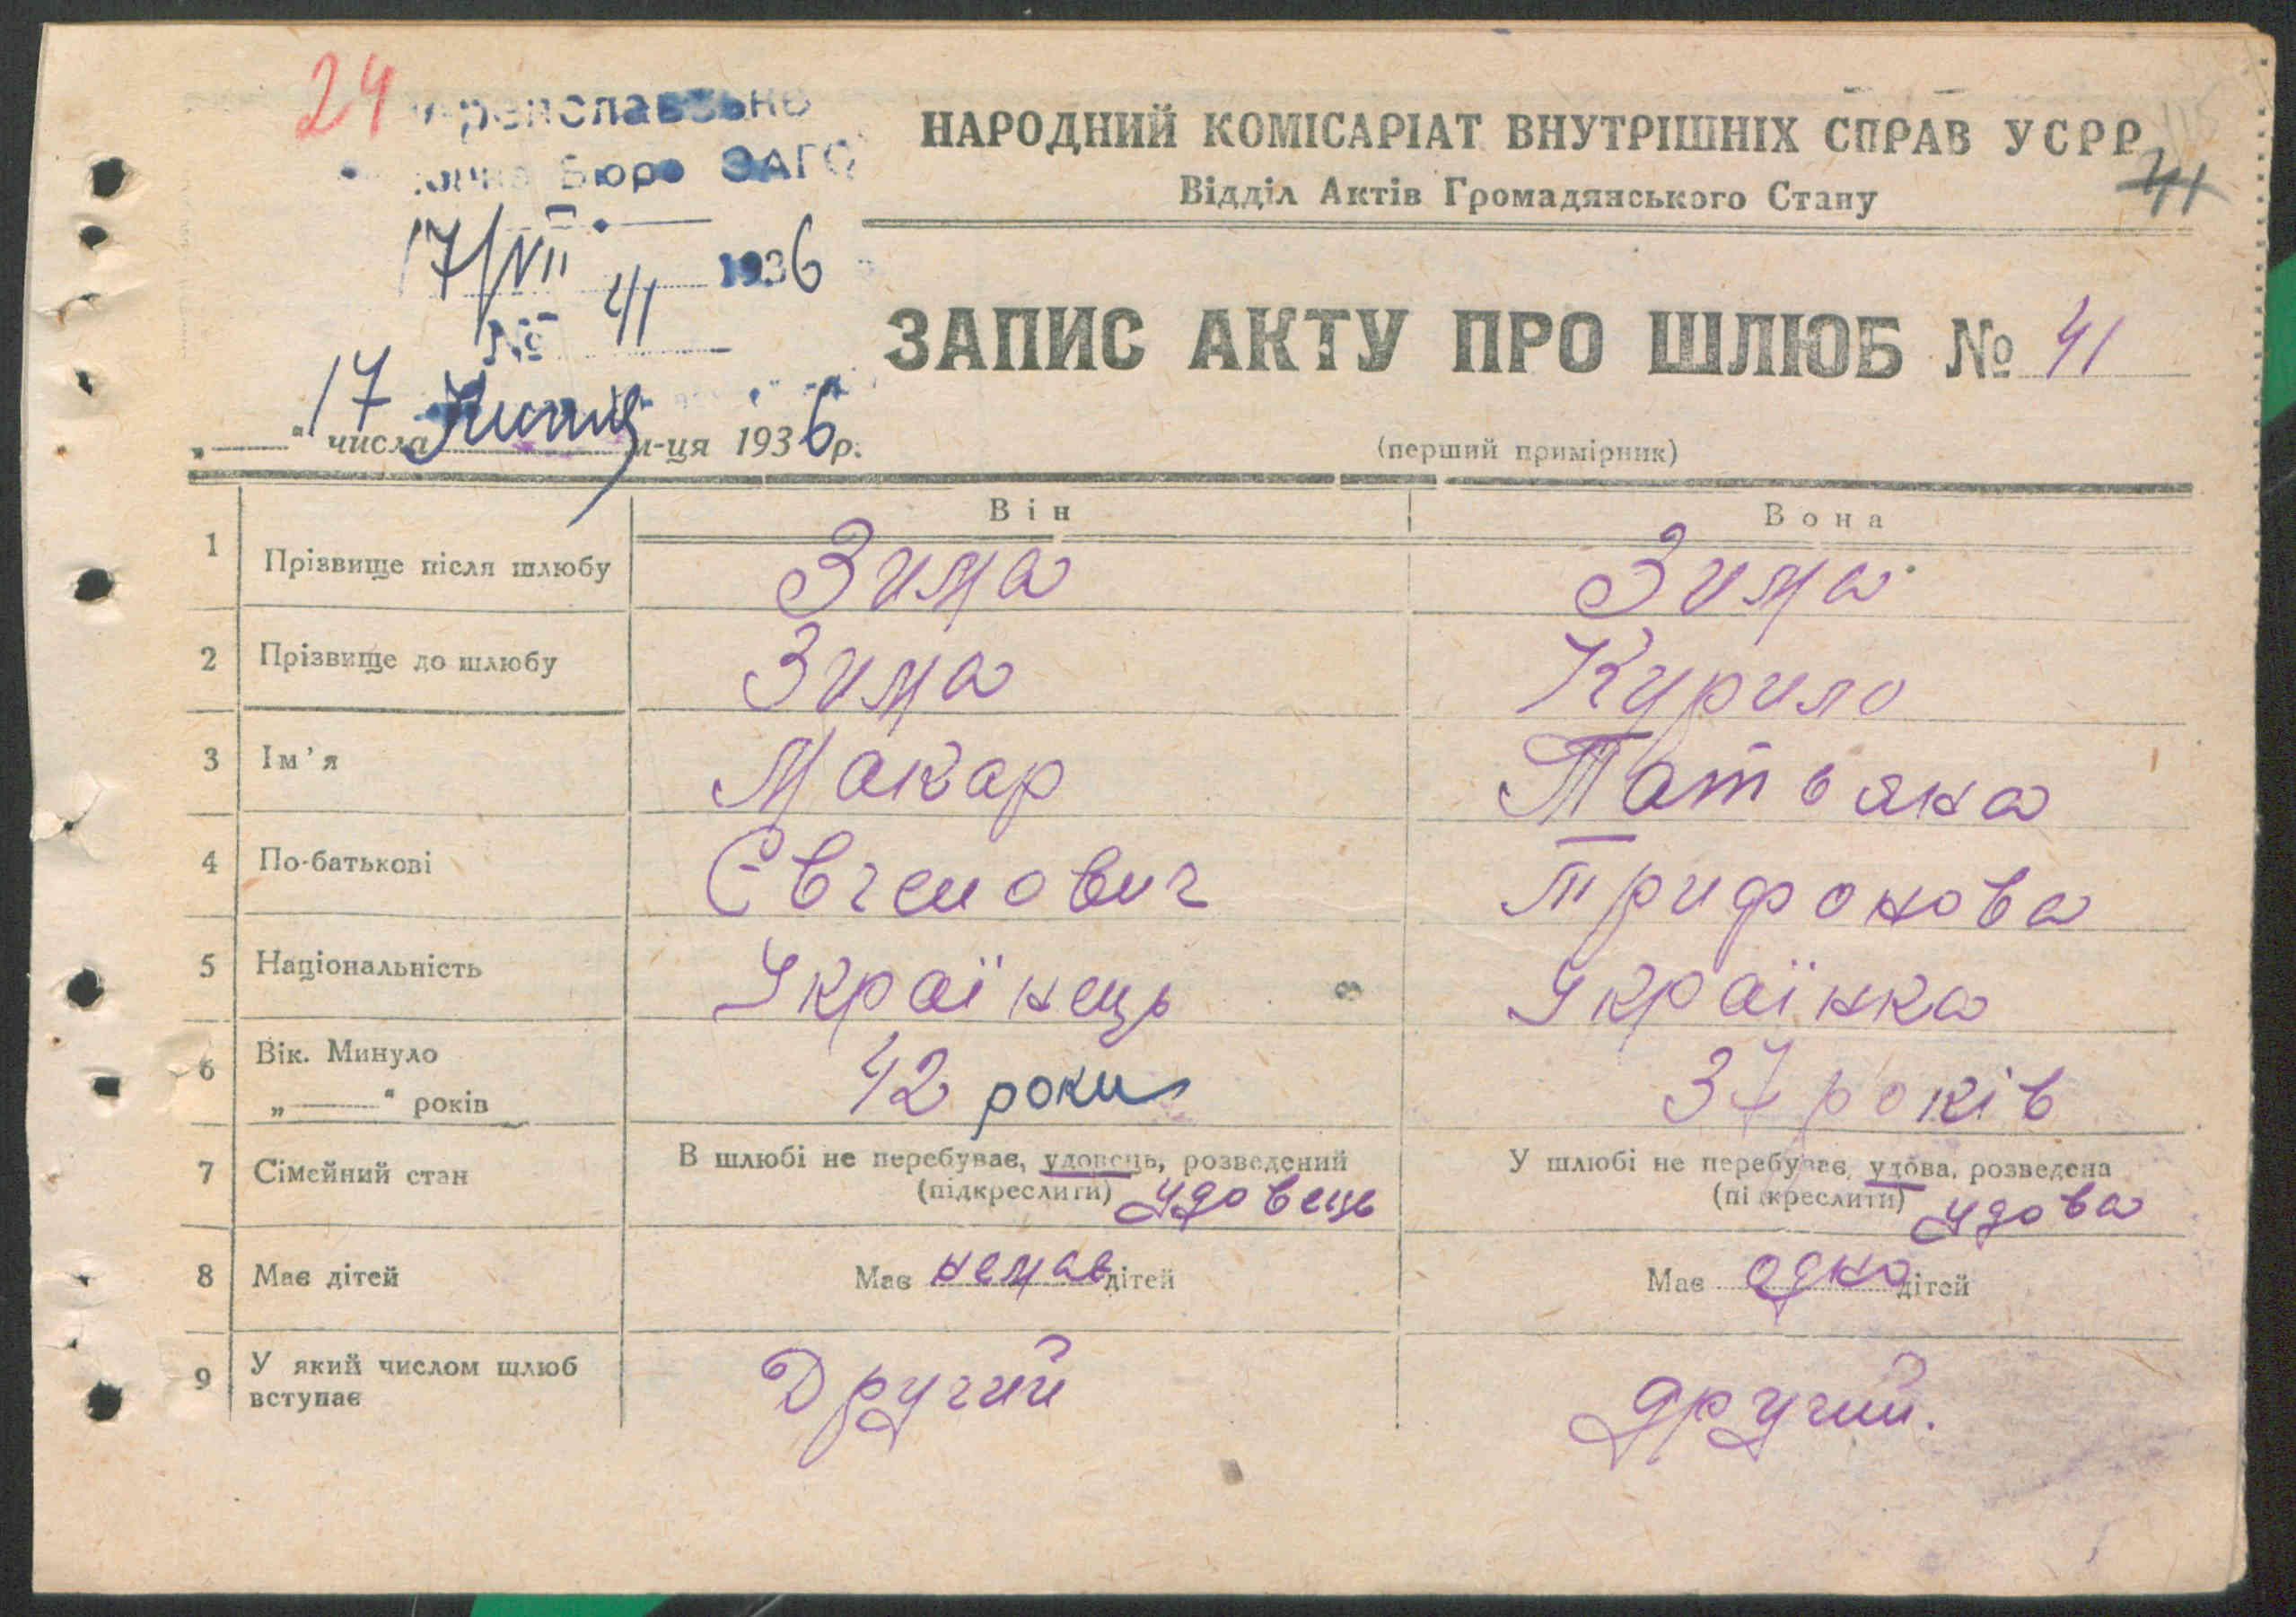 24
Бюро ЗАГС
НАРОДНИЙ КОМІСАРІАТ ВНУТРІШНІХ СПРАВ УСРР
41
Відділ Актів Громадянського Стану
17/VII 1936
№ 41
ЗАПИС АКТУ ПРО ШЛЮБ № 41
„17“ числа Липня м-ця 1936 р.
(перший примірник)
Він
Вона
1 Прізвище після шлюбу Зима Зима
2 Прізвище до шлюбу Зима Курило
3 Ім'я Макар Татьяна
4 По-батькові Євгенович Трифонова
5 Національність Українець Українка
6 Вік. Минуло
„—“ років 42 роки 37 років
7 Сімейний стан В шлюбі не перебував, удовець, розведений У шлюбі не перебував, удова, розведена
(підкреслити) удовець (підкреслити) удова
8 Має дітей Має немає дітей Має одно дітей
9 У який числом шлюб
вступає Другий другий.